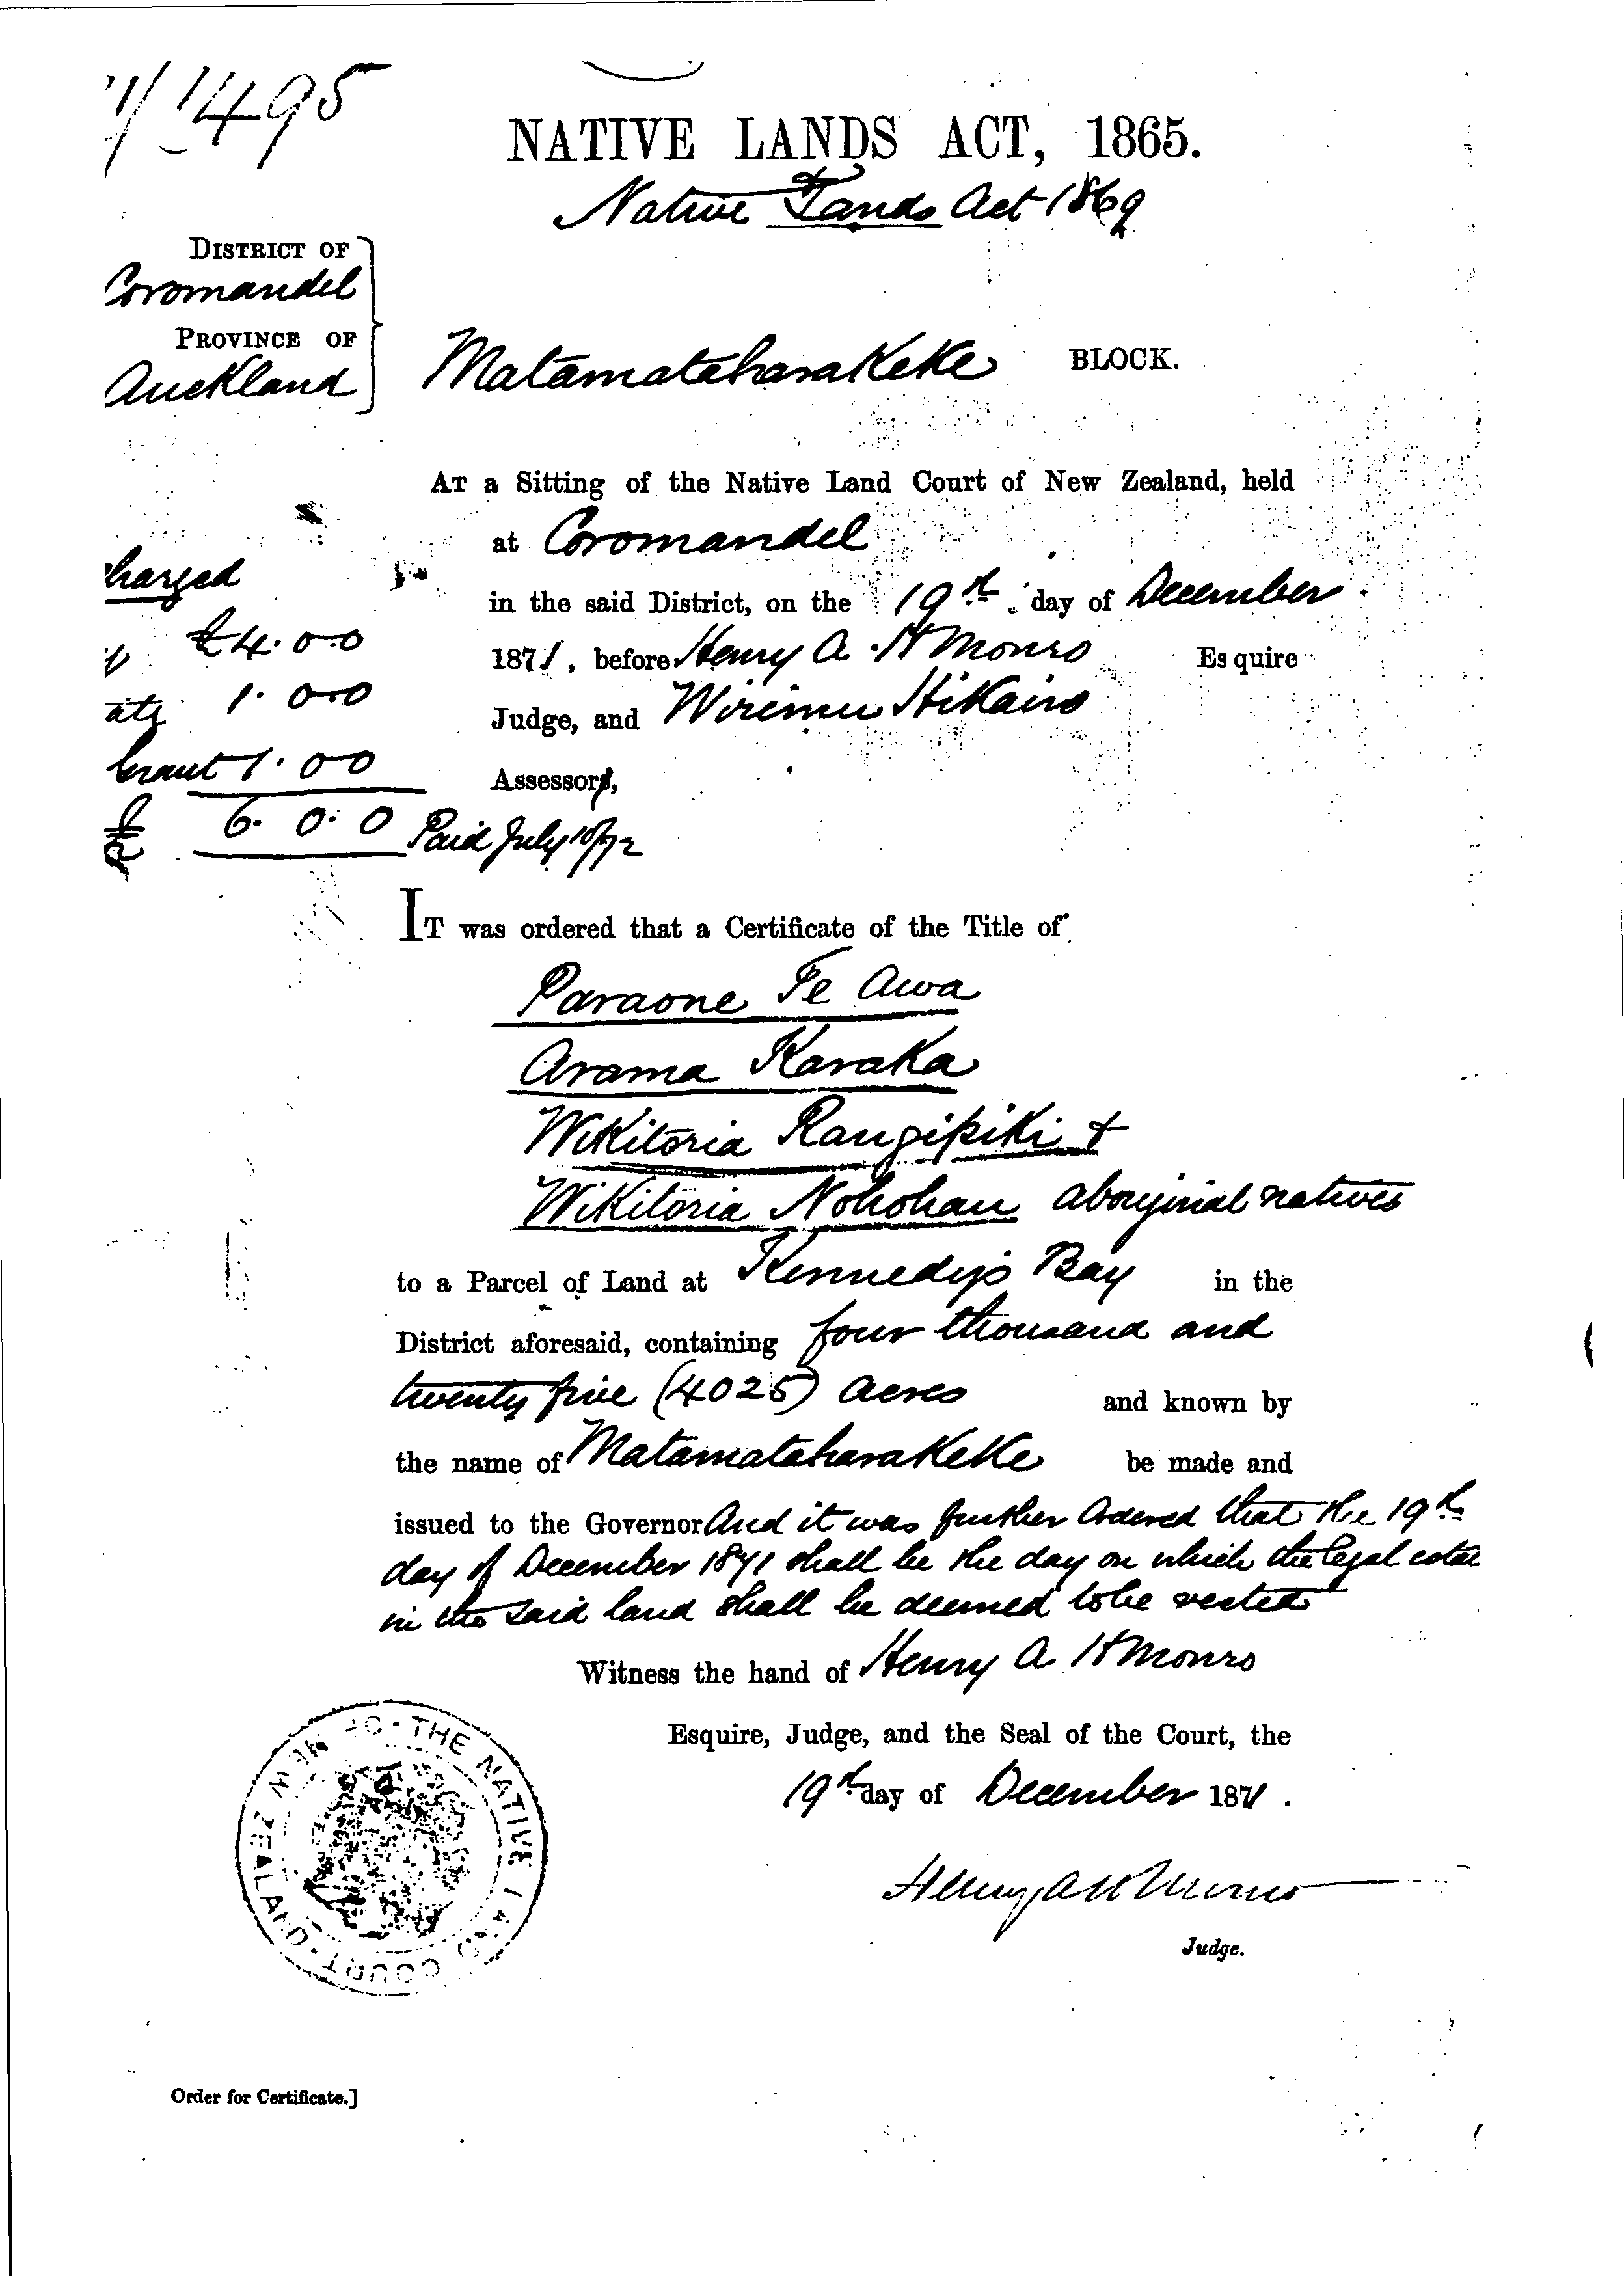 1495
NATIVE LANDS ACT, 1865.
Native Lands Act 1869
DISTRICT OF
Coromandel
PROVINCE OF
Auckland
Matamataharakeke BLOCK.
AT a Sitting of the Native Land Court of New Zealand, held
at Coromandel
in the said District, on the 19th day of December
1871, before Henry A. H Monro Esquire
Judge, and Wiremu Hikairo
Assessors,
harged
£4.0.0
1.0.0
Grant 1.0.0
£ 6. 0. 0 Paid July 10/72
IT was ordered that a Certificate of the Title of
Paraone Te Awa
Arama Karaka
Wikitoria Rangipiki &
Wikitoria Nohohau aboriginal natives
to a Parcel of Land at Kennedy's Bay in the
District aforesaid, containing four thousand and
twenty five (4025) acres and known by
the name of Matamataharakeke be made and
issued to the Governor And it was further Ordered that the 19th
day of December 1871 shall be the day on which the legal estate
in the said land shall be deemed to be vested
Witness the hand of Henry A. H Monro
Esquire, Judge, and the Seal of the Court, the
19th day of December 1871.
Henry A H Monro
Judge.
THE NATIVE LAND COURT OF NEW ZEALAND
Order for Certificate.]